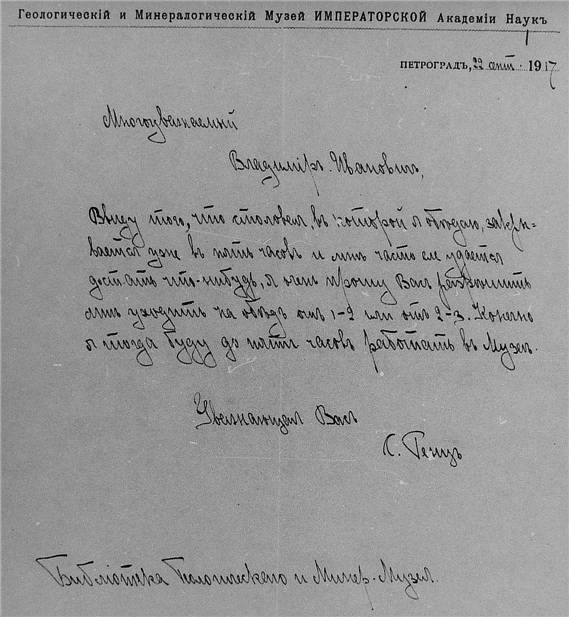 Геологическій и Минералогическій Музей ИМПЕРАТОРСКОЙ Академіи Наукъ
ПЕТРОГРАДЪ, 22 апт. 1917
Многоуважаемый
Владиміръ Ивановичъ,
Ввиду того, что столовая, въ которой я обѣдаю, закры-
вается уже въ пять часовъ и мнѣ часто не удается
достать что-нибудь, я очень прошу Васъ разрѣшить
мнѣ уходить на обѣдъ отъ 1-2 или отъ 2-3. Конечно
я тогда буду до пяти часовъ работать въ Музеѣ.
Уважающая Васъ
С.
Библіотека Геологическаго и Минер. Музея.